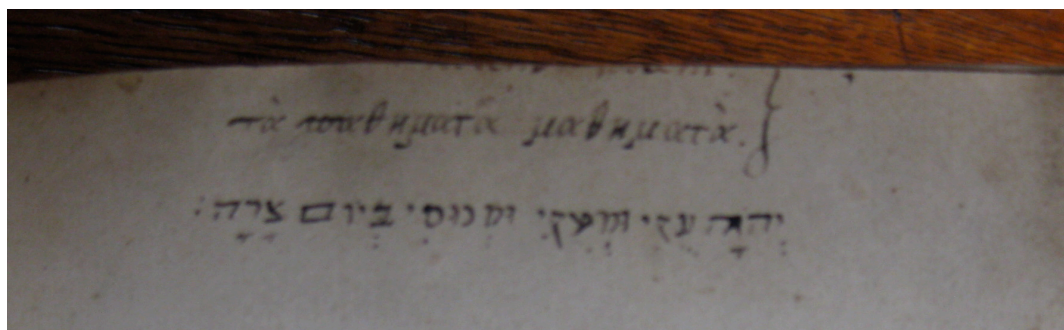 τὰ παθηματὰ μαθηματὰ.
יְהוָה עֻזִּי וּמָעֻזִּי וּמְנוּסִי בְּיוֹם צָרָה: